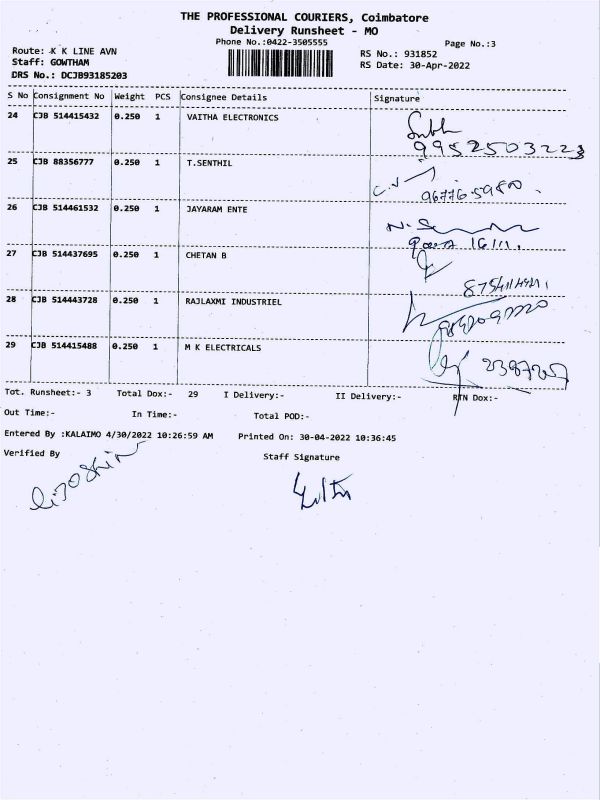 THE PROFESSIONAL COURIERS, Coimbatore
Delivery Runsheet - MO
Phone No.:0422-3505555
Page No.:3
Route: K K LINE AVN
RS No.: 931852
Staff: GOWTHAM
RS Date: 30-Apr-2022
DRS No.: DCJB93185203
S No Consignment No Weight PCS Consignee Details Signature
24 CJB 514415432 0.250 1 VAITHA ELECTRONICS
9952503223
25 CJB 88356777 0.250 1 T.SENTHIL
26 CJB 514461532 0.250 1 JAYARAM ENTE
27 CJB 514437695 0.250 1 CHETAN B
28 CJB 514443728 0.250 1 RAJLAXMI INDUSTRIEL
29 CJB 514415488 0.250 1 M K ELECTRICALS
Tot. Runsheet:- 3 Total Dox:- 29 I Delivery:- II Delivery:- RTN Dox:-
Out Time:- In Time:- Total POD:-
Entered By :KALAIMO 4/30/2022 10:26:59 AM Printed On: 30-04-2022 10:36:45
Verified By Staff Signature